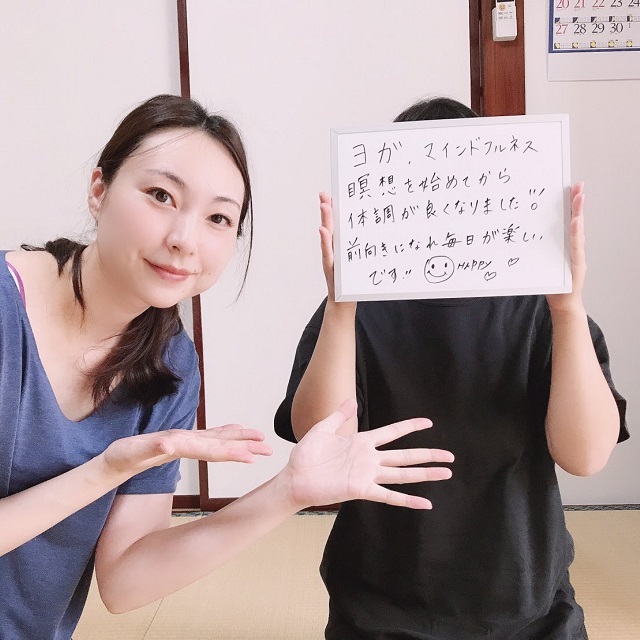 20 21 22 23 24
27 28 29 30
ヨガ、マインドフルネス
瞑想を始めてから
体調が良くなりました!!
前向きになれ毎日が楽しい
です!! HAPPY